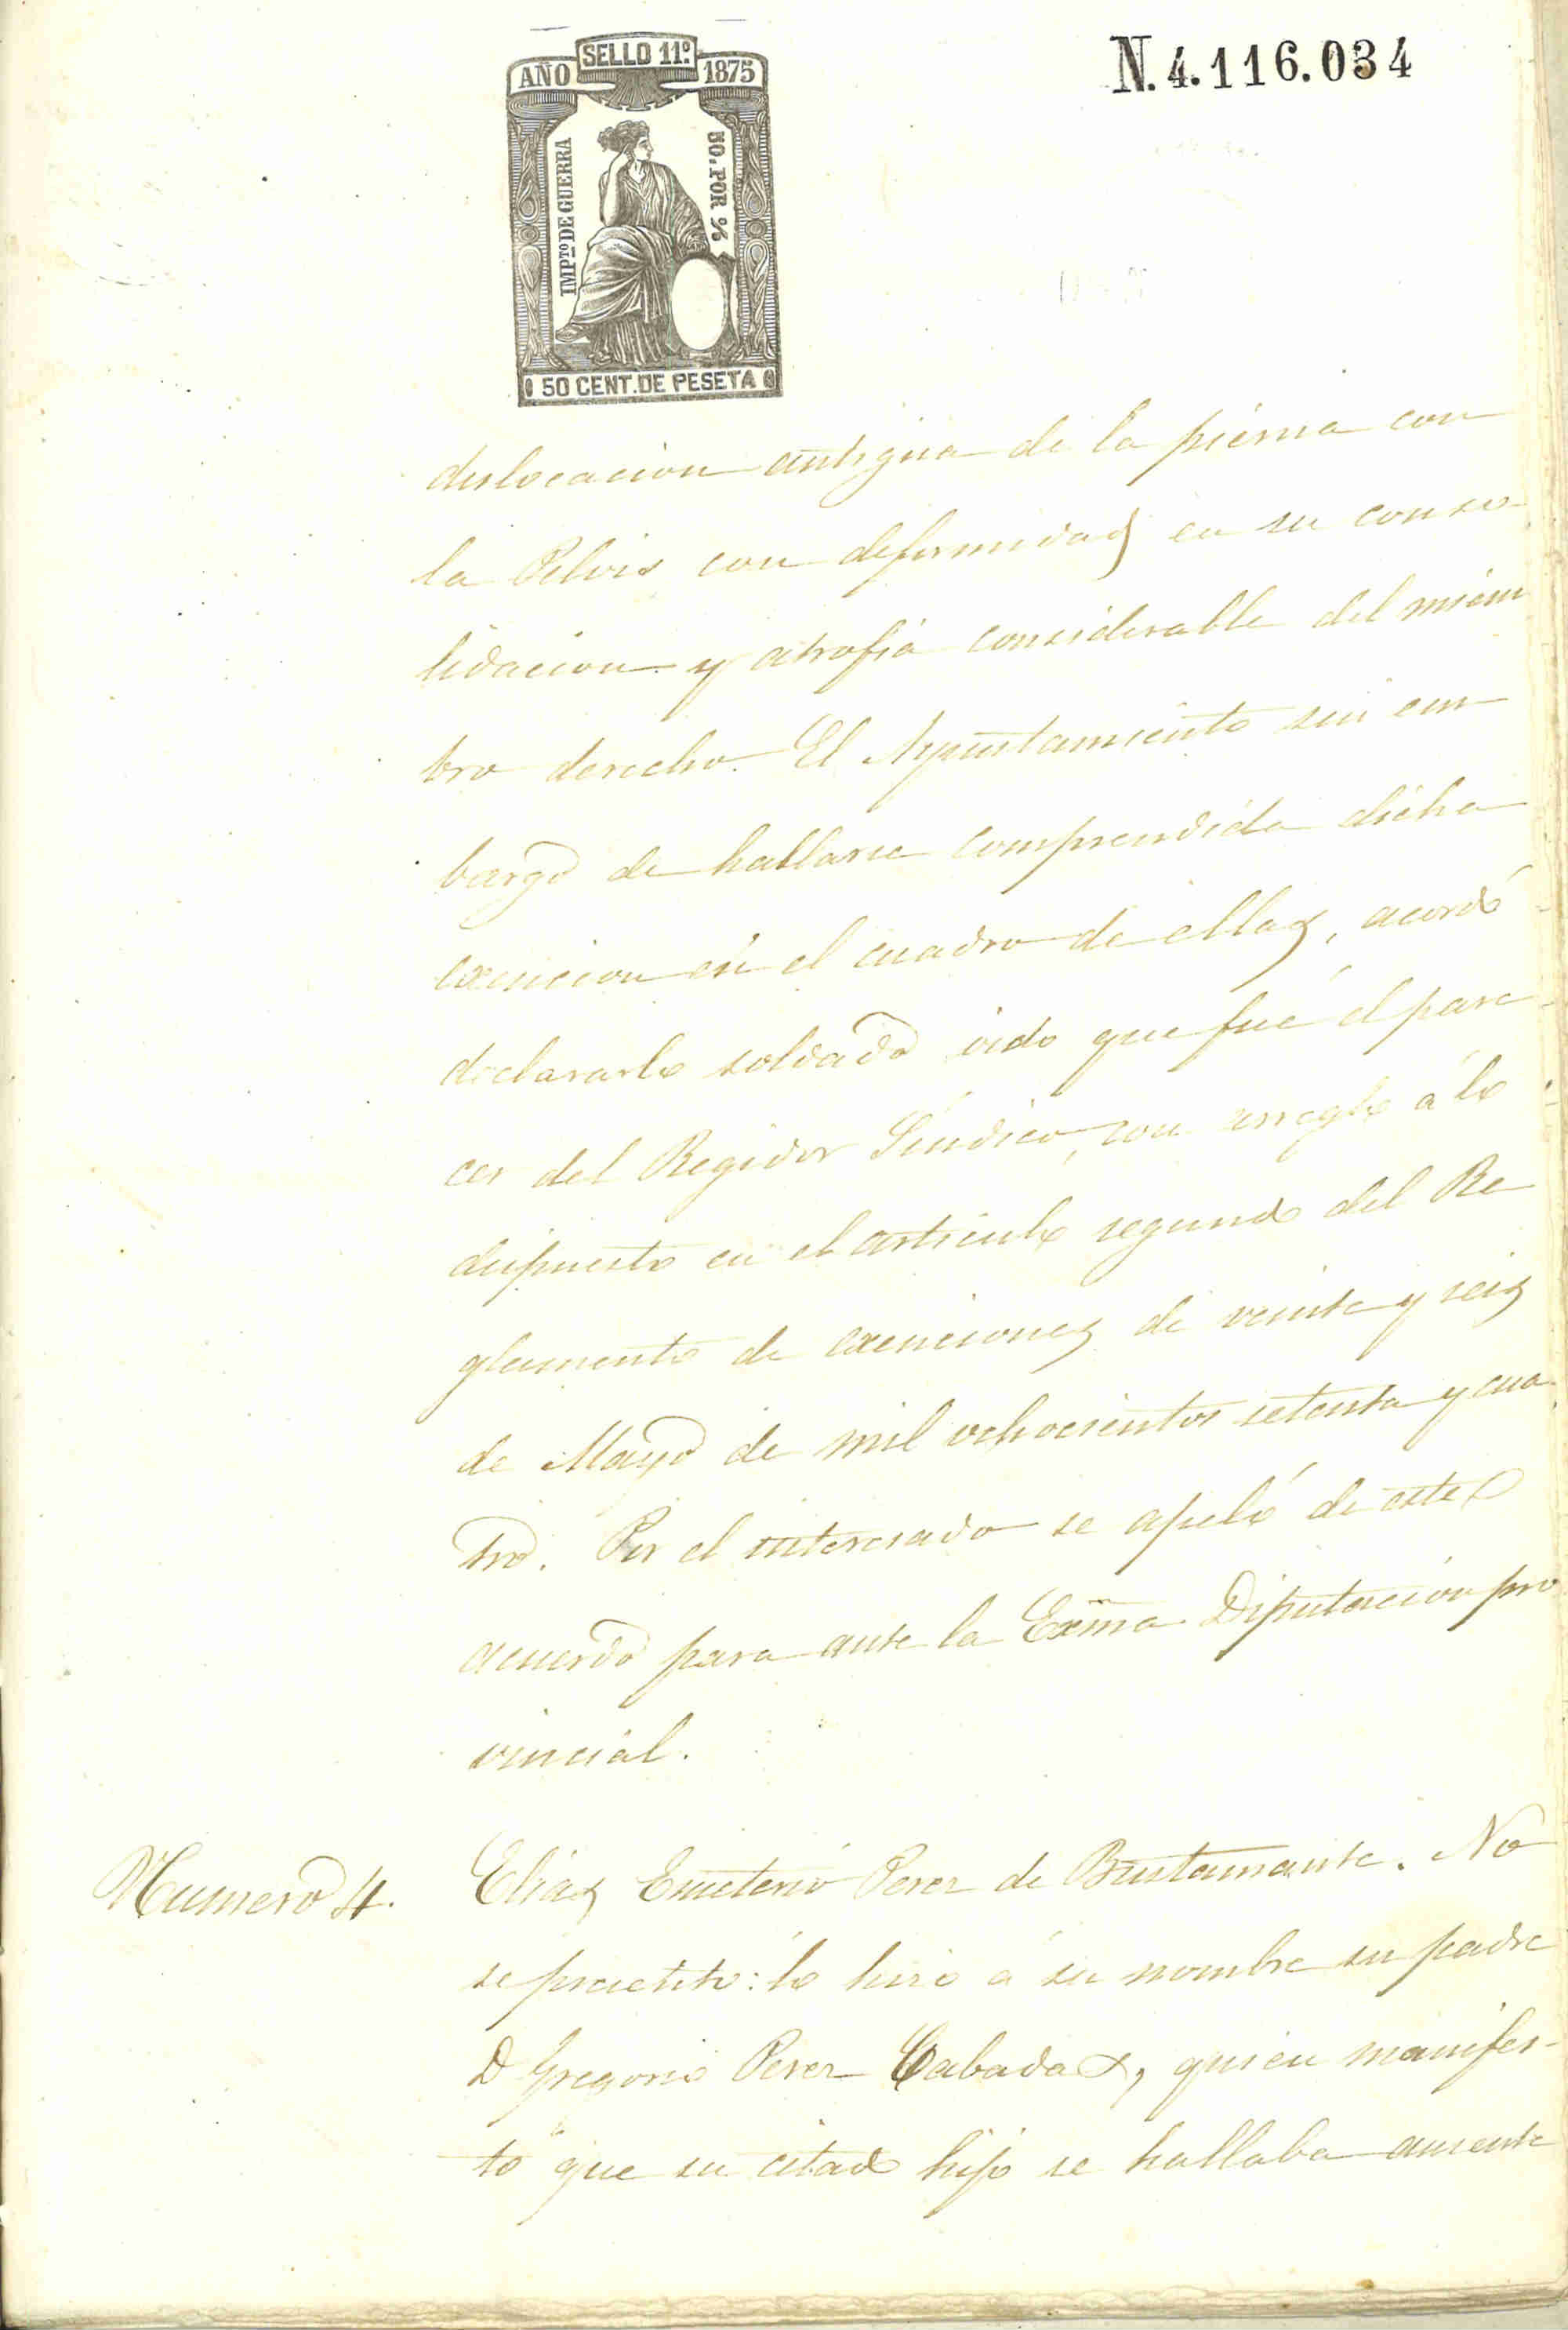 SELLO 11º
AÑO 1875
N. 4.116.034
IMPTO DE GUERRA
50. POR %
50 CENT. DE PESETA
dislocacion antigua de la pierna con
la Pelvis con deformidad en su conso
lidacion y atrofia considerable del miem
bro derecho. El Ayuntamiento sin em
bargo de hallarse comprendida dicha
exencion en el cuadro de ellas, acordó
declararlo soldado oido que fué el pare
cer del Regidor Síndico, con arreglo á lo
dispuesto en el artículo segundo del Re
glamento de exenciones de veinte y seis
de Mayo de mil ochocientos setenta y cua
tro. Por el interesado se apeló de este
acuerdo para ante la Exma Diputacion pro
vincial.
Numero 4. Elias Emeterio Perez de Bustamante. No
se presentó: lo hizo á su nombre su padre
D Gregorio Perez Cabadas, quien manifes-
tó que su citado hijo se hallaba ausente